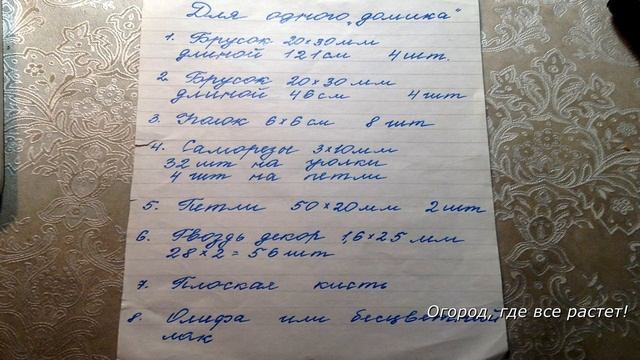 Для одного „домика"
1. Брусок 20×30 мм
длиной 121 см 4 шт.
2. Брусок 20×30 мм
длиной 46 см 4 шт
3. Уголок 6×6 см 8 шт
4. Саморезы 3×10 мм
32 шт на уголки
4 шт на петли
5. Петли 50×20 мм 2 шт
6. Гвоздь декор 1,6×25 мм
28×2=56 шт
7. Плоская кисть
8. Олифа или бесцветный
лак
Огород, где все растет!